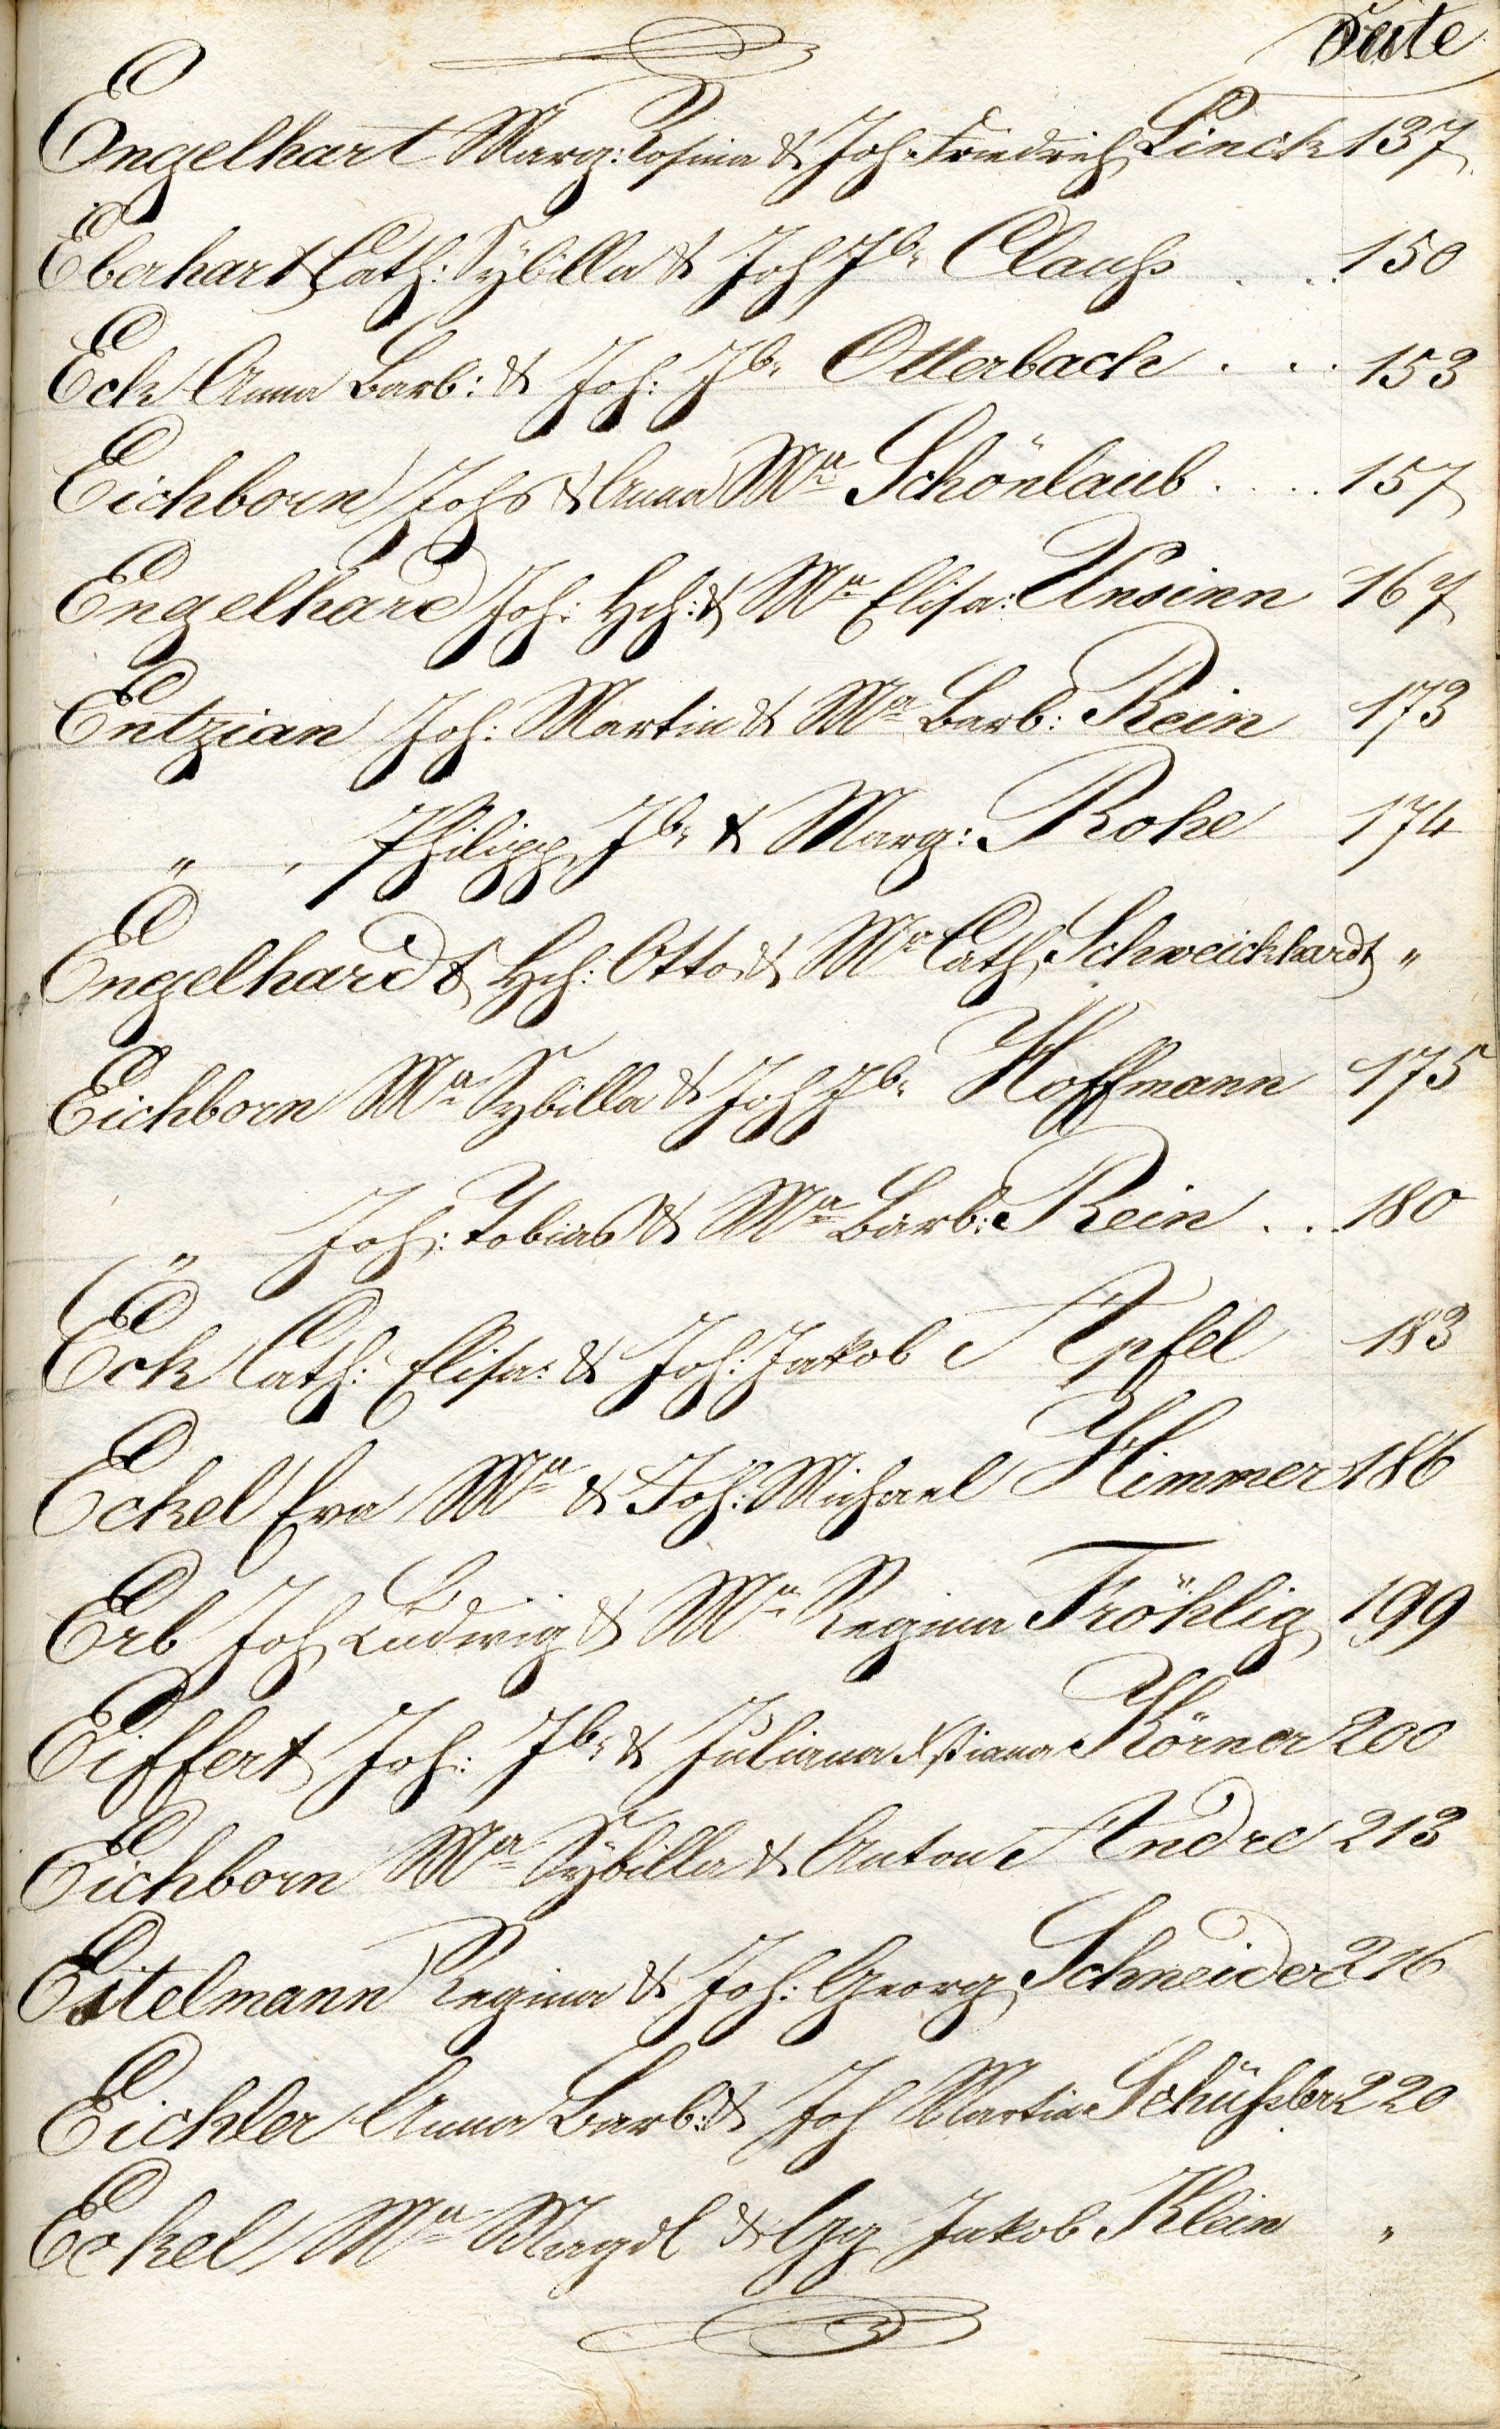 Seite
Engelhart Marg: Rosina & Joh: Friedrich Linck 137
Eberhart Cath: Sÿbilla & Joh Jb: Clauss . . . 150
Eck Anna Barb: & Joh: Jb: Otterbach . . . 153
Eichborn Johs & Anna Ma Schönlaub . . . . 157
Engelhard Joh: Hch: & Ma Elisa: Unsinn 167
Entzian Joh: Martin & Ma Barb: Rein 173
" , Philipp Jb: & Marg: Rohe 174
Engelhardt Hch: Otto & Ma Cath Schweickhardt "
Eichborn Ma Sybilla & Joh Jb: Hoffmann 175
" Joh: Tobias & Ma Barb: Rein . . . 180
Eck Cath: Elisa: & Joh: Jakob Apfel 183
Eckel Eva Ma & Joh: Michael Himmer 186
Erb Joh Ludwig & Ma Regina Fröhlig 199
Eiffert Joh: Jb: & Juliana Xstiana Körner 200
Eichborn Ma Sÿbilla & Anton Andre 213
Eitelmann Regina & Joh: Georg Schneider 216
Eichler Anna Barb: & Joh Martin Schüssler 220
Eckel Ma Magdl & Gg Jakob Klein "